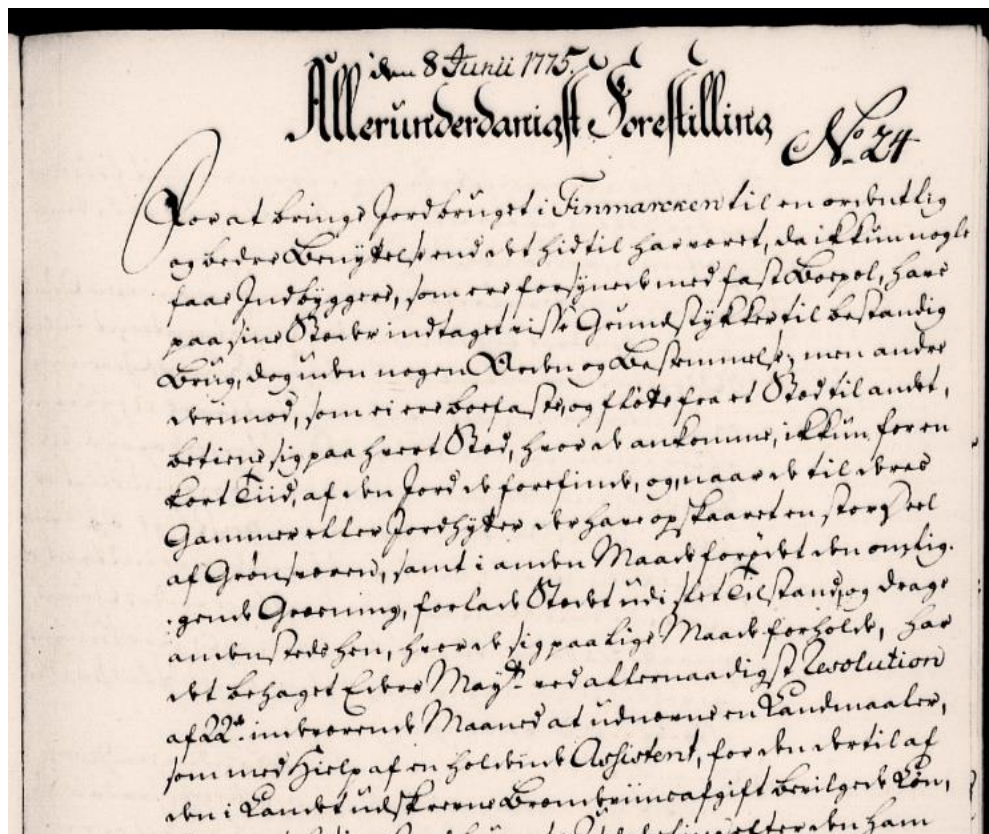 den 8 Junii 1775.
Allerunderdanigst Forestilling
No. 24
For at bringe Jordbruget i Finmarcken til en ordentlig
og bedre Benyttelse end det hidtil har været, da ikkun nogle
faae Indbyggere, som ere forsynede med fast Boepæl, have
paa sine Stæder indtaget visse Grundstykker til bestandig
Brug, dog uden nogen Orden og Bestemmelse; men andre
derimod, som ei ere boefaste, og flötte fra et Stæd til andet,
betiene sig paa hvert Stæd, hvor de ankomme, ikkun for en
kort Tiid, af den Jord de forefinde, og, naar de til deres
Gammer eller Jordhytter der have opskaaret en stor Deel
af Grönsværen, samt i anden Maade forödet den omlig-
gende Græsning, forlade Stædet udi slet Tilstand, og drage
andenstæds hen, hvor de sig paa lige Maade forholde, har
det behaget Eders Mayt. ved allernaadigst Resolution
af 22de indeværende Maaned at udnævne en Landmaaler,
som med Hielp af en holdende Assistent, for den dertil af
den i Landet udskrevne Brændeviinsafgift bevilgede Lön,